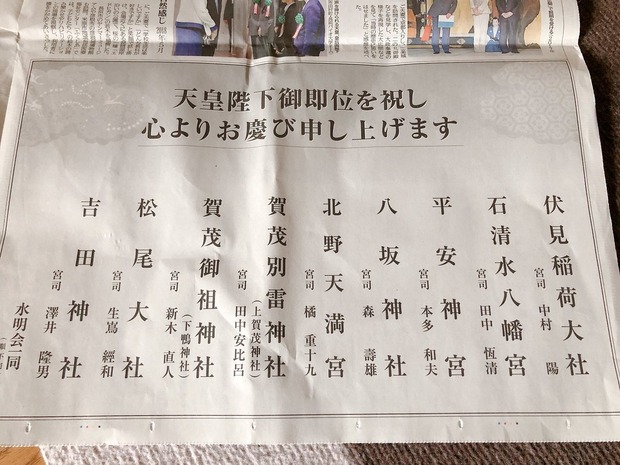 天皇陛下御即位を祝し
心よりお慶び申し上げます
伏見稲荷大社
宮司 中村 陽
石清水八幡宮
宮司 田中 恆清
平安神宮
宮司 本多 和夫
八坂神社
宮司 森 壽雄
北野天満宮
宮司 橘 重十九
賀茂別雷神社
(上賀茂神社)
宮司 田中安比呂
賀茂御祖神社
(下鴨神社)
宮司 新木 直人
松尾大社
宮司 生嶌 經和
吉田神社
宮司 澤井 隆男
水明会一同